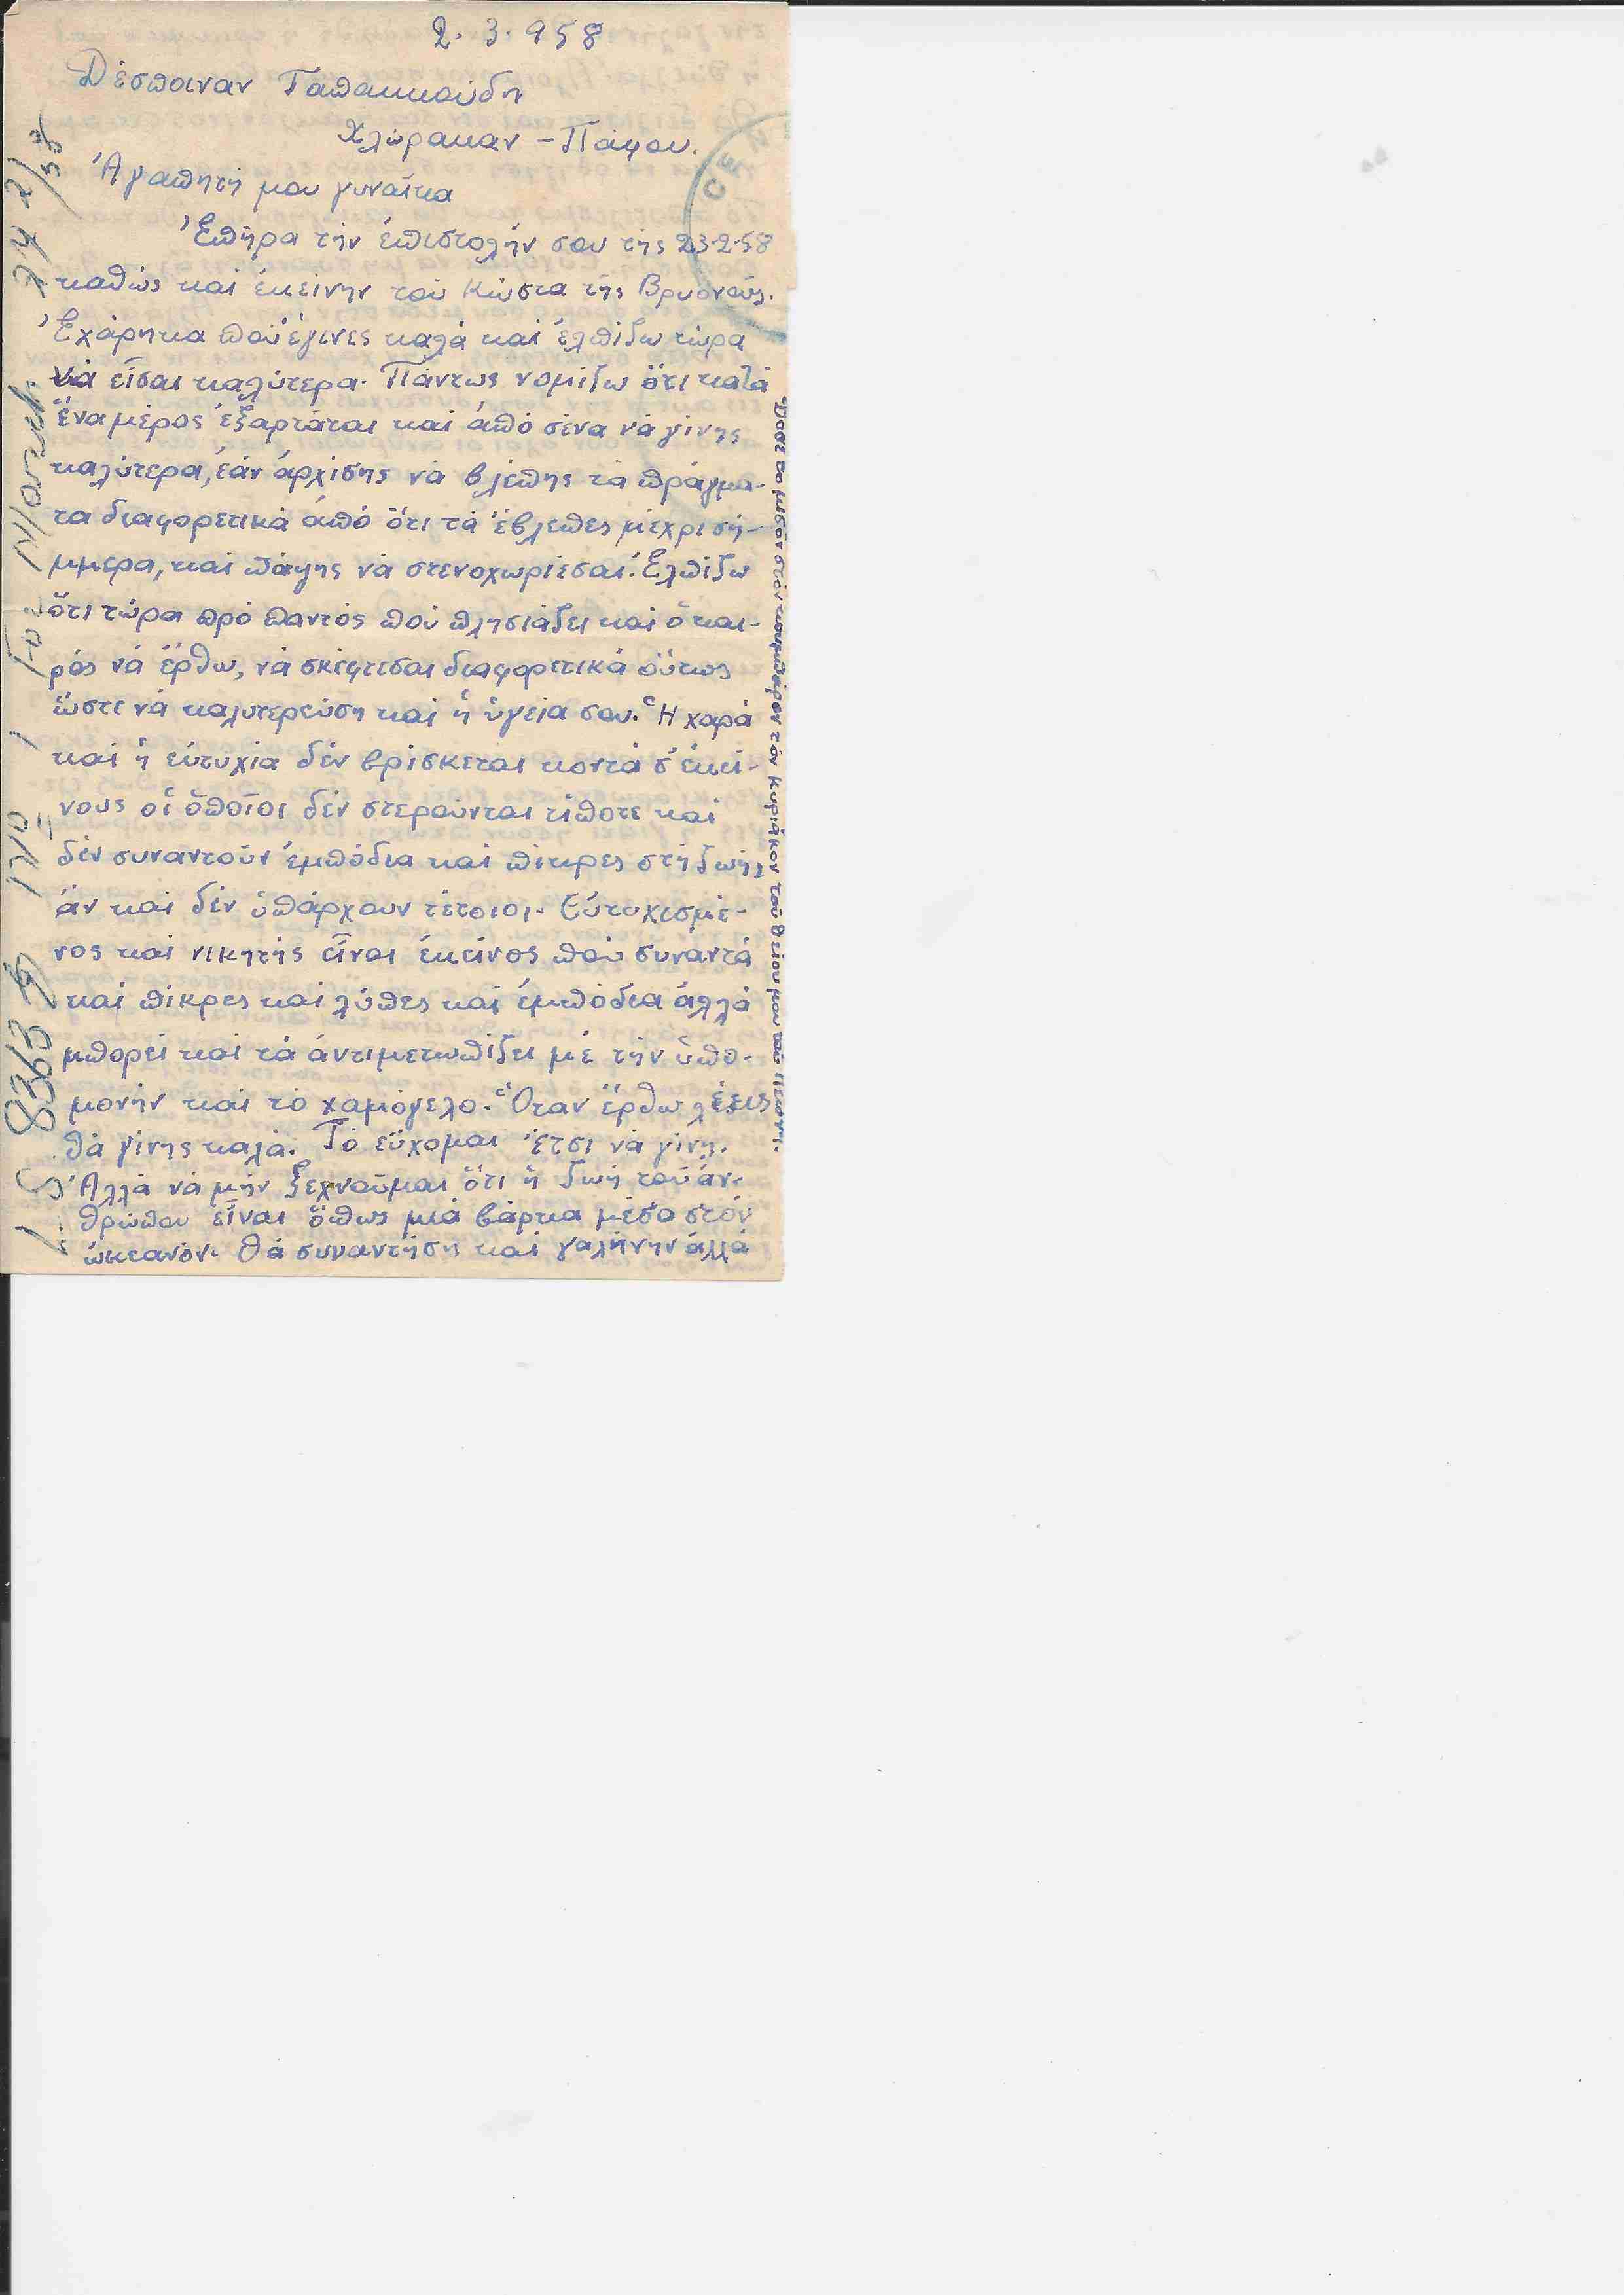 2. 3. 958
Δέσποιναν Ταπακκούδη
Χλώρακαν - Πάφου.
Ἀγαπητή μου γυναῖκα
Ἐπῆρα τήν ἐπιστολήν σου τῆς 23-2-58
καθώς καί ἐκείνην τοῦ Κώστα τῆς Βρυονοῦς.
Ἐχάρηκα πού ἔγινες καλά καί ἐλπίζω τώρα
νά εἶσαι καλύτερα. Πάντως νομίζω ὅτι κατά
ἕνα μέρος ἐξαρτάται καί ἀπό σένα νά γίνης
καλύτερα, ἐάν ἀρχίσης νά βλέπης τά πράγμα-
τα διαφορετικά ἀπό ὅτι τά ἔβλεπες μέχρι σή-
μμερα, καί πάψης νά στενοχωριέσαι. Ἐλπίζω
ὅτι τώρα πρό παντός πού πλησιάζει καί ὁ και-
ρός νά ἔρθω, νά σκέφτεσαι διαφορετικά οὕτως
ὥστε νά καλυτερεύση καί ἡ ὑγεία σου. Ἡ χαρά
καί ἡ εὐτυχία δέν βρίσκεται κοντά σ' ἐκεί-
νους οἱ ὁποῖοι δέν στεροῦνται τίποτε καί
δέν συναντοῦν ἐμπόδια καί πίκρες στή ζωή,
ἄν καί δέν ὑπάρχουν τέτοιοι. Εὐτυχισμέ-
νος καί νικητής εἶναι ἐκεῖνος πού συναντά
καί πίκρες καί λύπες καί ἐμπόδια ἀλλά
μπορεί καί τά ἀντιμετωπίζει μέ τήν ὑπο-
μονήν καί τό χαμόγελο. Ὅταν ἔρθω λέεις
θά γίνης καλά. Τό εὔχομαι ἔτσι νά γίνη.
Ἀλλά νά μήν ξεχνοῦμαι ὅτι ἡ ζωή τοῦ ἀν-
θρώπου εἶναι ὅπως μιά βάρκα μέσα στόν
ὠκεανόν. Θά συναντήση καί γαλήνην ἀλλά
Δόσε το μέσον στόν κουμπάρον τόν Κυριάκον τοῦ θείου μου τοῦ
8363
CE